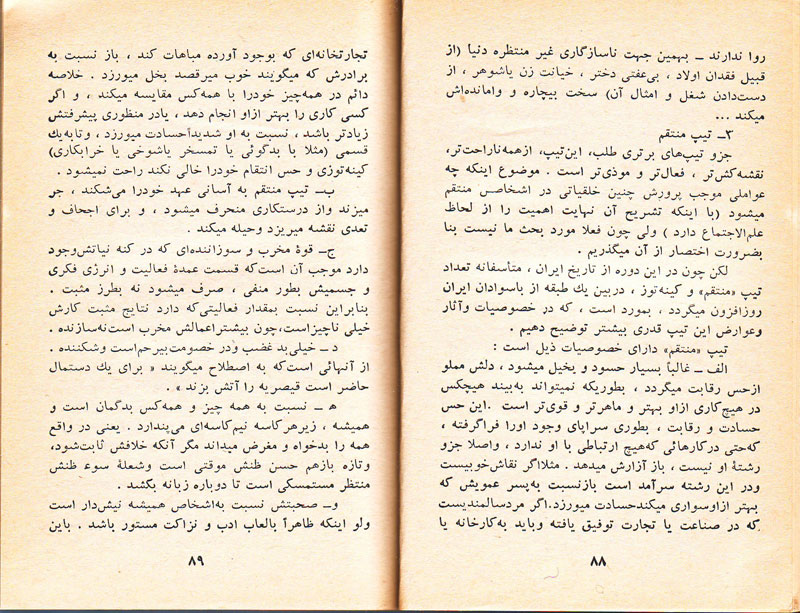 روا ندارند ــ بهمین جهت ناسازگاری غیر منتظره دنیا (از
قبیل فقدان اولاد ، بی‌عفتی دختر ، خیانت زن یاشوهر ، از
دست‌دادن شغل و امثال آن) سخت بیچاره و وامانده‌اش
میکند ...
۳ــ تیپ منتقم
جزو تیپ‌های برتری طلب، این‌تیپ، ازهمه‌ناراحت‌تر،
نقشه‌کش‌تر ، فعال‌تر و موذی‌تر است . موضوع اینکه چه
عواملی موجب پرورش چنین خلقیاتی در اشخاص منتقم
میشود (با اینکه تشریح آن نهایت اهمیت را از لحاظ
علم‌الاجتماع دارد ) ولی چون فعلا مورد بحث ما نیست بنا
بضرورت اختصار از آن میگذریم .
لکن چون در این دوره از تاریخ ایران ، متأسفانه تعداد
تیپ «منتقم» و کینه‌توز ، دربین یك طبقه از باسوادان ایران
روزافزون میگردد ، بمورد است ، که در خصوصیات وآثار
وعوارض این تیپ قدری بیشتر توضیح دهیم .
تیپ «منتقم» دارای خصوصیات ذیل است :
الف ــ غالباً بسیار حسود و بخیل میشود ، دلش مملو
ازحس رقابت میگردد ، بطوریکه نمیتواند به‌بیند هیچکس
در هیچ‌کاری ازاو بهتر و ماهرتر و قوی‌تر است .این حس
حسادت و رقابت ، بطوری سراپای وجود اورا فراگرفته ،
که‌حتی درکارهائی که‌هیچ ارتباطی با او ندارد ، واصلا جزو
رشتهٔ او نیست ، باز آزارش میدهد . مثلااگر نقاش‌خوبیست
ودر این رشته سرآمد است بازنسبت به‌پسر عمویش که
بهتر ازاوسواری میکندحسادت میورزد.اگر مردسالمندیست
که در صناعت یا تجارت توفیق یافته وباید به‌کارخانه یا
۸۸
تجارتخانه‌ای که بوجود آورده مباهات کند ، باز نسبت به
برادرش که میگویند خوب میرقصد بخل میورزد . خلاصه
دائم در همه‌چیز خودرا با همه‌کس مقایسه میکند ، و اگر
کسی کاری را بهتر ازاو انجام دهد ، یادر منظوری پیشرفتش
زیادتر باشد ، نسبت به او شدیدآحسادت میورزد ، وتابه‌یك
قسمی (مثلا با بدگوئی یا تمسخر یاشوخی یا خرابکاری)
کینه‌توزی و حس انتقام خودرا خالی نکند راحت نمیشود .
ب‍ــ تیپ منتقم به آسانی عهد خودرا می‌شکند ، جر
میزند واز درستکاری منحرف میشود ، و برای اجحاف و
تعدی نقشه میریزد وحیله میکند .
ج‍ــ قوهٔ مخرب و سوزاننده‌ای که در کنه نیاتش‌وجود
دارد موجب آن است‌که قسمت عمدهٔ فعالیت و انرژی فکری
و جسمیش بطور منفی ، صرف میشود نه بطرز مثبت .
بنابراین نسبت بمقدار فعالیتی‌که دارد نتایج مثبت کارش
خیلی ناچیزاست،چون بیشتراعمالش مخرب است‌نه‌سازنده .
د ــ خیلی‌بد غضب ودر خصومت‌بیرحم‌است وشکننده .
از آنهائی است‌که به اصطلاح میگویند « برای یك دستمال
حاضر است قیصریه را آتش بزند » .
ه‍ ــ نسبت به همه چیز و همه‌کس بدگمان است و
همیشه ، زیرهرکاسه نیم‌کاسه‌ای می‌پندارد . یعنی در واقع
همه را بدخواه و مغرض میداند مگر آنکه خلافش ثابت‌شود،
وتازه بازهم حسن ظنش موقتی است وشعلهٔ سوء ظنش
منتظر مستمسکی است تا دوباره زبانه بکشد .
و ــ صحبتش نسبت به‌اشخاص همیشه نیش‌دار است
ولو اینکه ظاهرآ بالعاب ادب و نزاکت مستور باشد . باین
۸۹